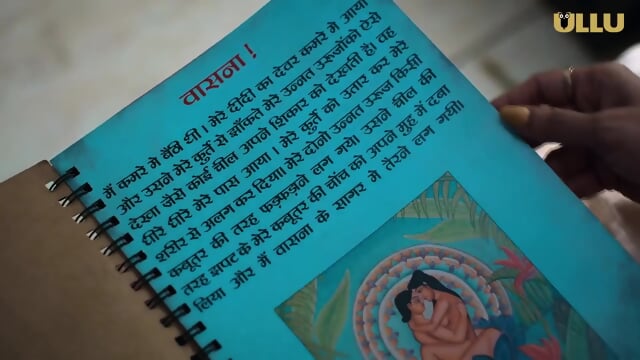 ULLU
वासना !
मैं कमरे मे बैठि थी । मेरे दीदी का देवर कमरे मे आया
और उसने मेरे कुर्ते से झाँकते मेरे उन्नत उरूजोंको ऐसे
देखा जैसे कोई चील अपने शिकार को देखती है। वह
धीरे धीरे मेरे पास आया । मेरे कुर्ते को उतार कर मेरे
शरीर से अलग कर दिया। मेरे दोनो उन्नत उरूज किसी
कबूतर की तरह फड़फड़ाने लग गये। उसने चील की
तरह झपट के मेरे कबूतर की चोंच को अपने मुह मे दबा
लिया और मैं वासना के सागर मे तैरने लग गयी।